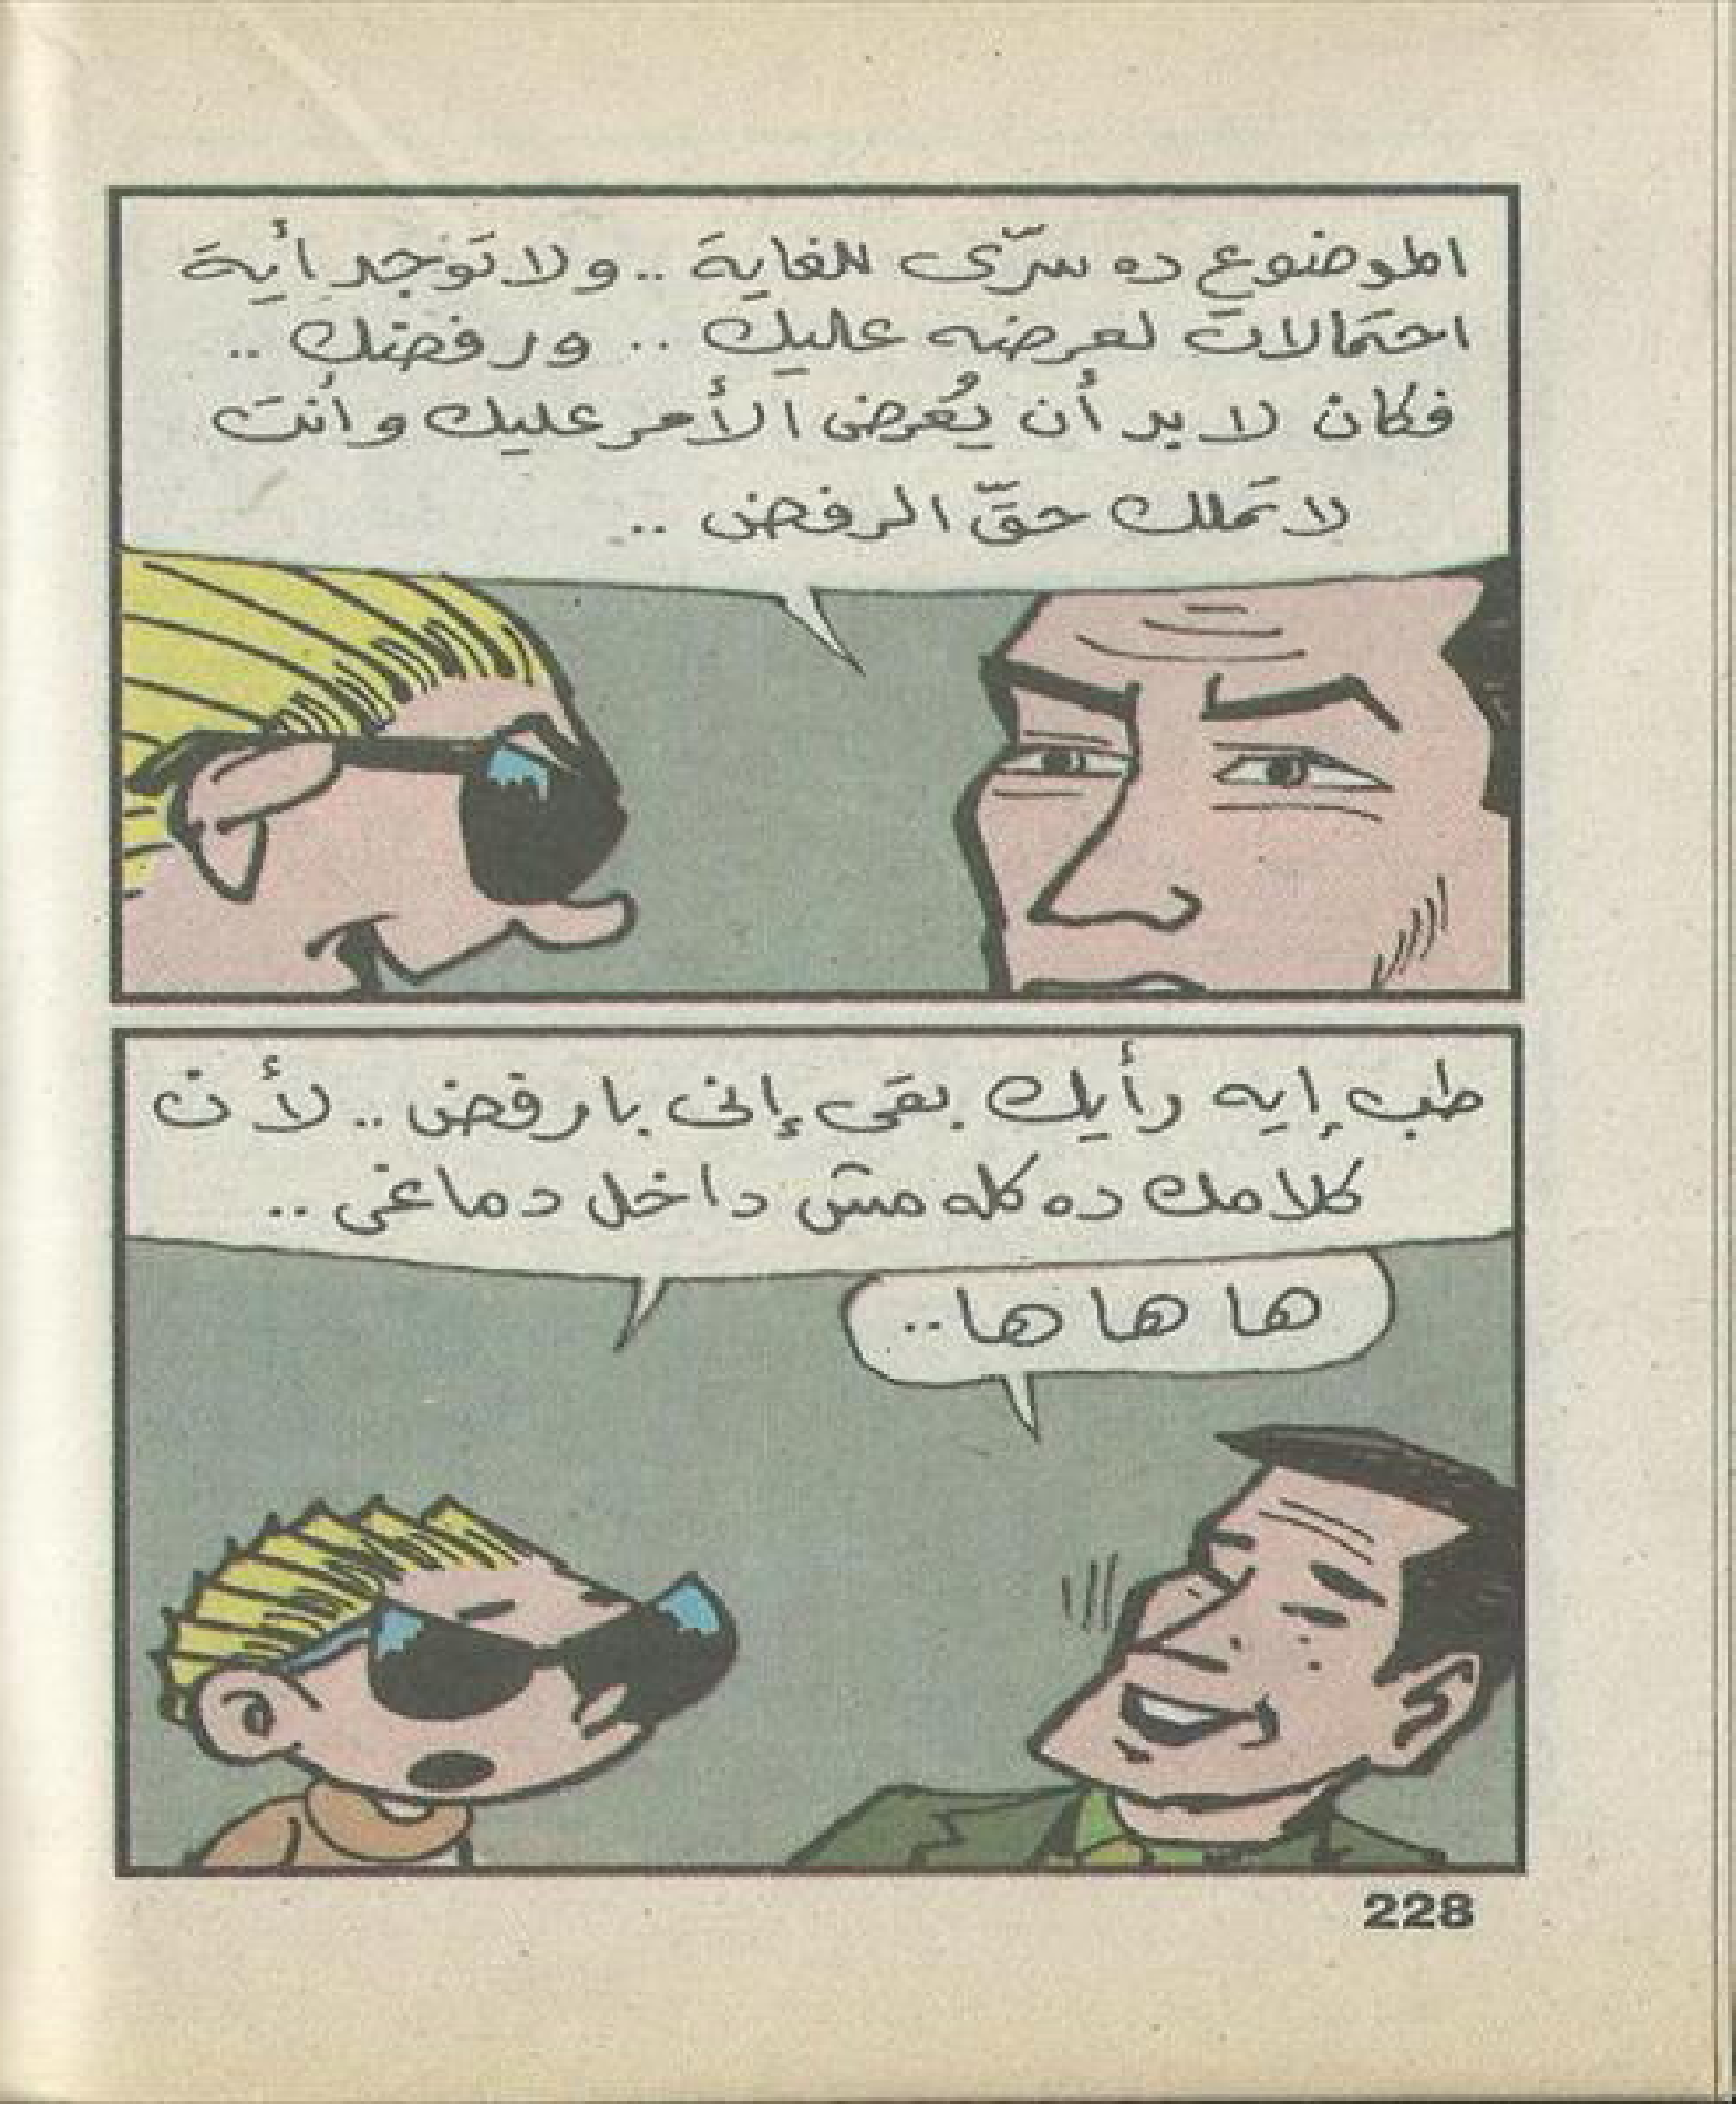 الموضوع ده سرّى للغاية .. ولا توجد أية
احتمالات لعرضه عليك .. ورفضك ..
فكان لا بد أن يُعرض الأمر عليك وأنت
لا تملك حقّ الرفض ..
طب إيه رأيك بقى إنى بارفض .. لأن
كلامك ده كله مش داخل دماغى ..
ها ها ها ..
228